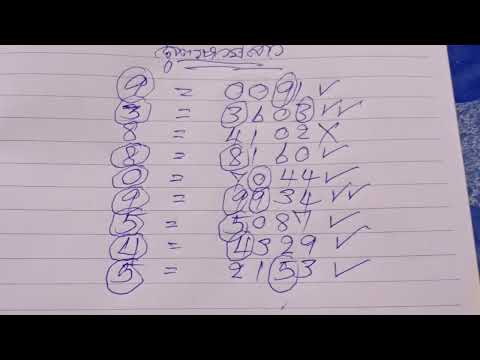 9 = 0091 ✓
3 = 3603 ✓✓
8 = 4102 X
8 = 8160 ✓
0 = 7044 ✓
9 = 9934 ✓✓
5 = 5087 ✓
4 = 4329 ✓
5 = 2153 ✓